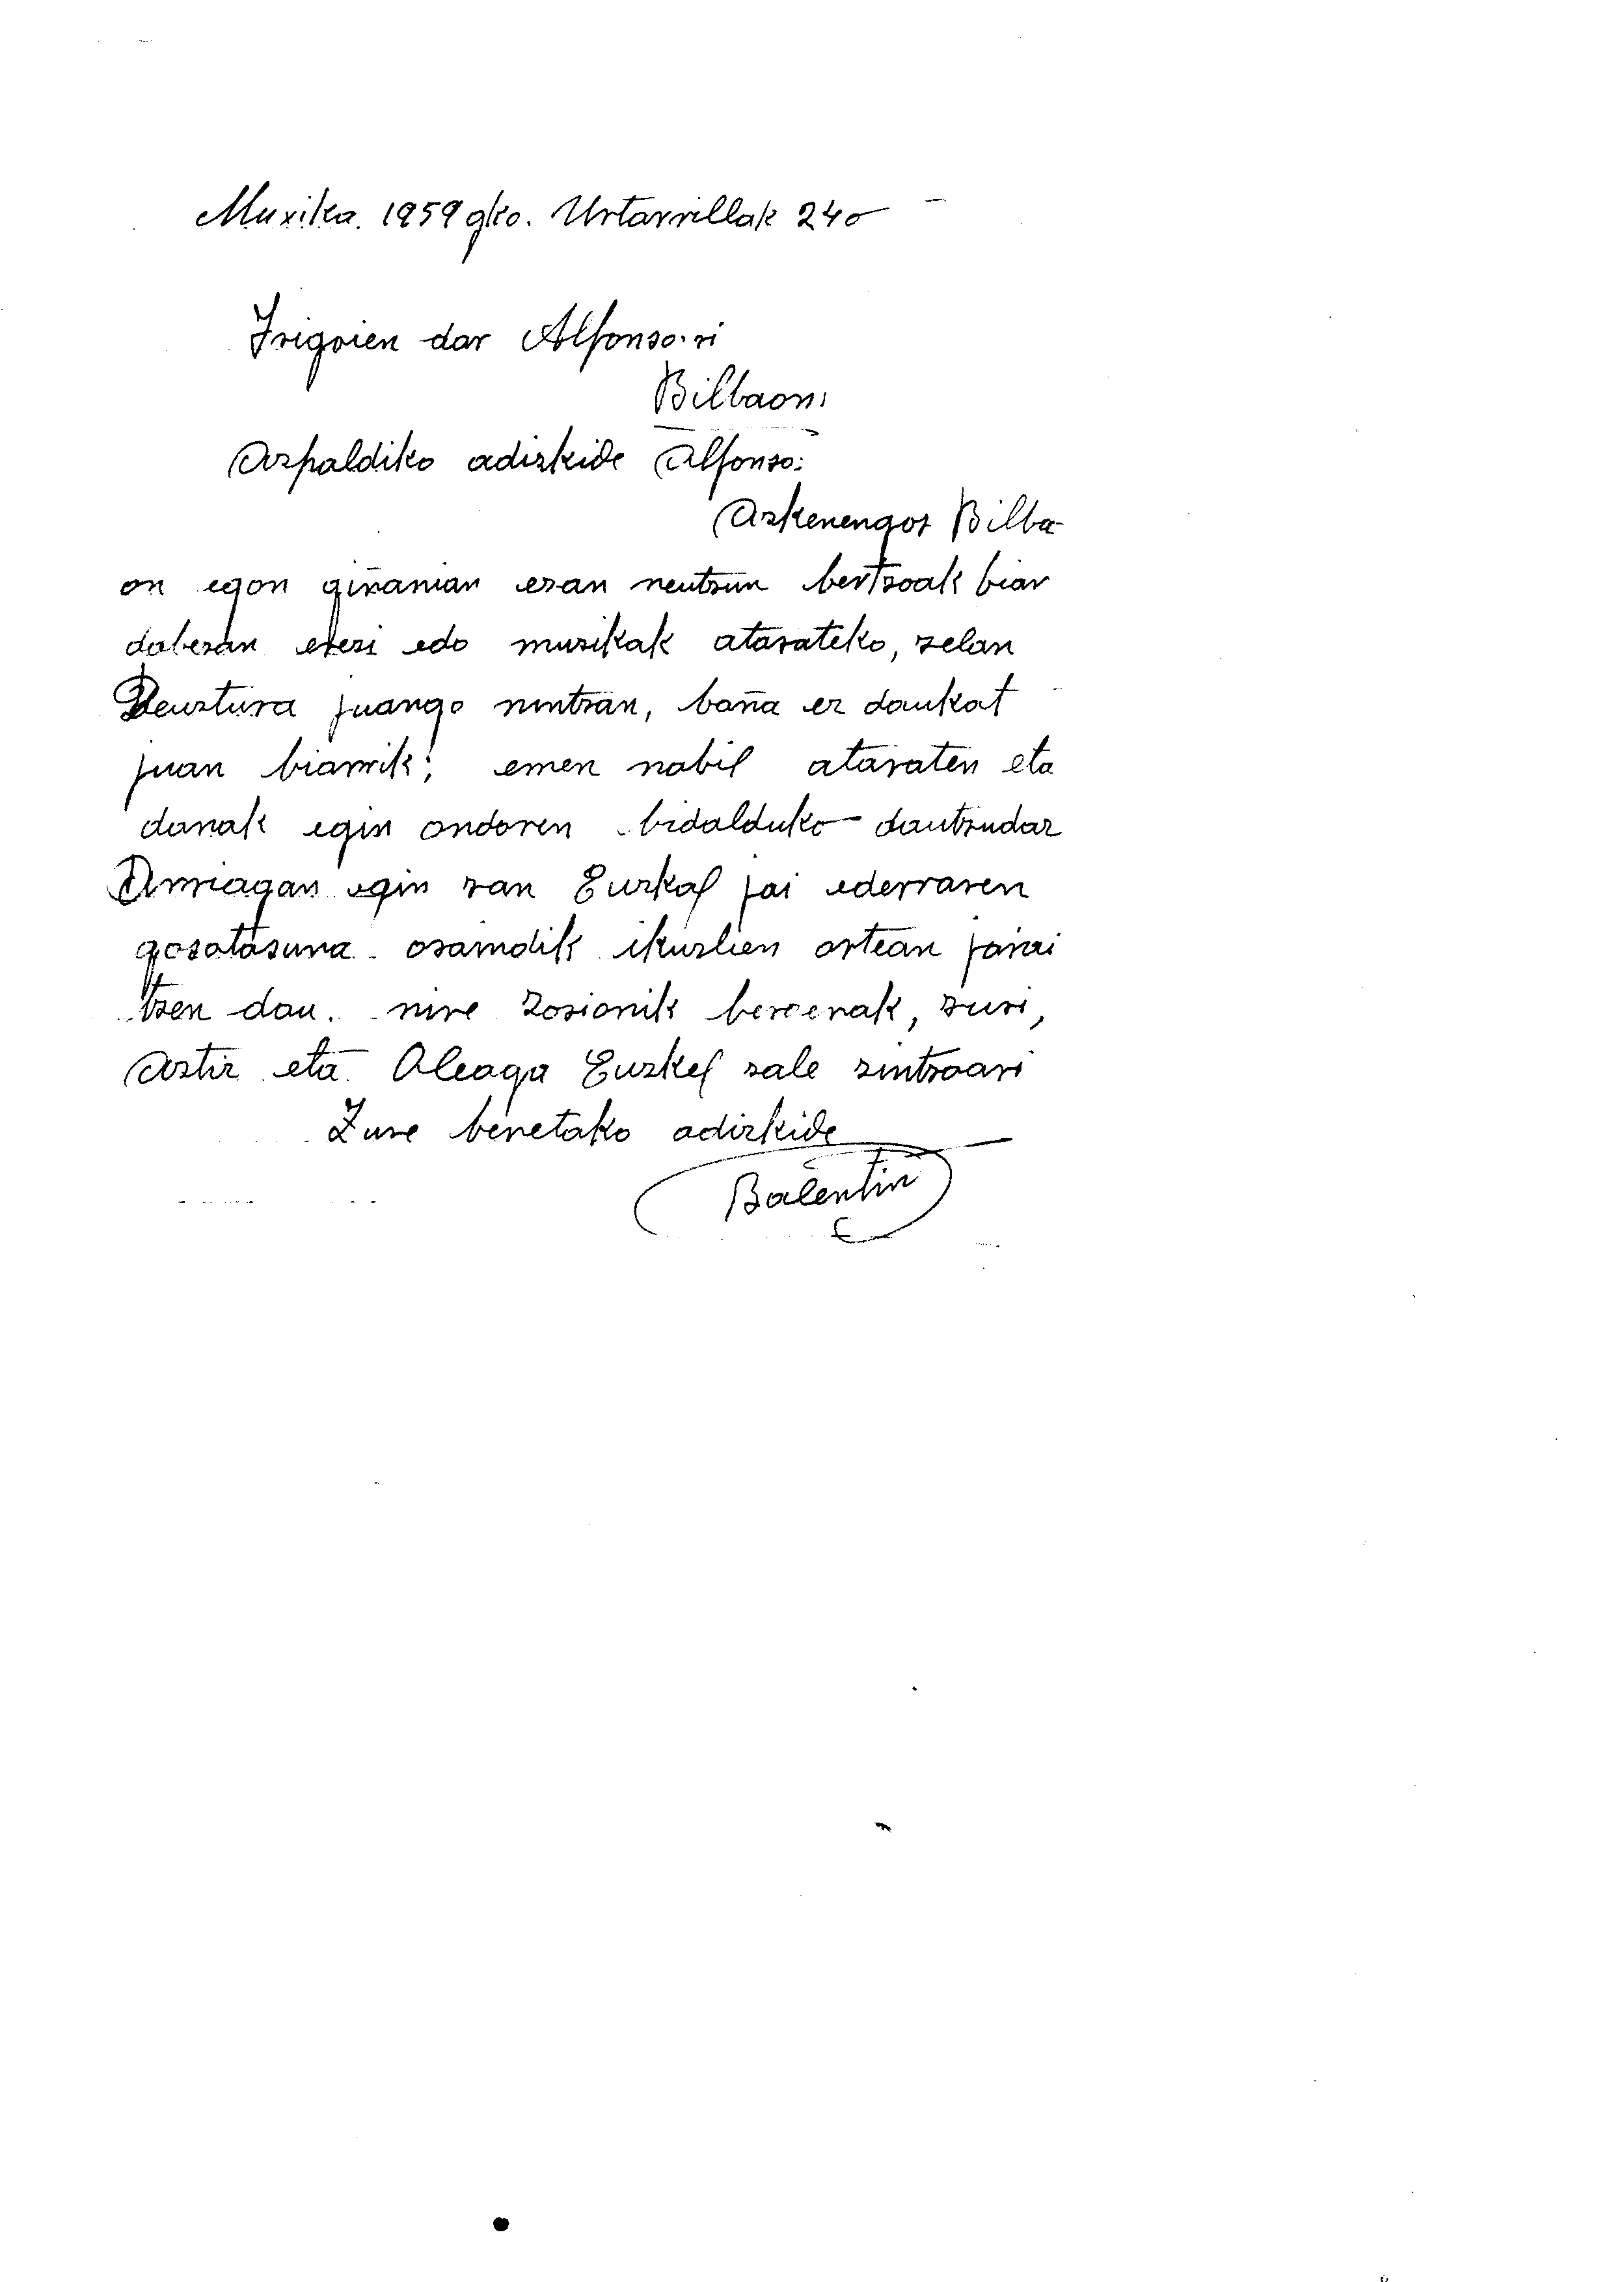 Muxika. 1959 gko. Urtarrillak 24 o
Irigoien dar Alfonso-ri
Bilbaon:
Azpaldiko adizkide Alfonso:
Azkenengoz Bilba-
on egon giñanian esan neutzun bertzoak biar
dabezan erezi edo musikak atarateko, zelan
Deuztura juango nintzan, baña ez daukat
juan biarrik; emen nabil ataraten eta
danak egin ondoren bidalduko dautzudaz
Arriagan egin zan Euzkal jai ederraren
gozotasuna oraindik ikuzlien artean jarrai
tzen dau. nire zorionik beroenak, zuri,
Aztiz eta Aleaga Euzkel zale zintzoari
Zure benetako adizkide
Balentin